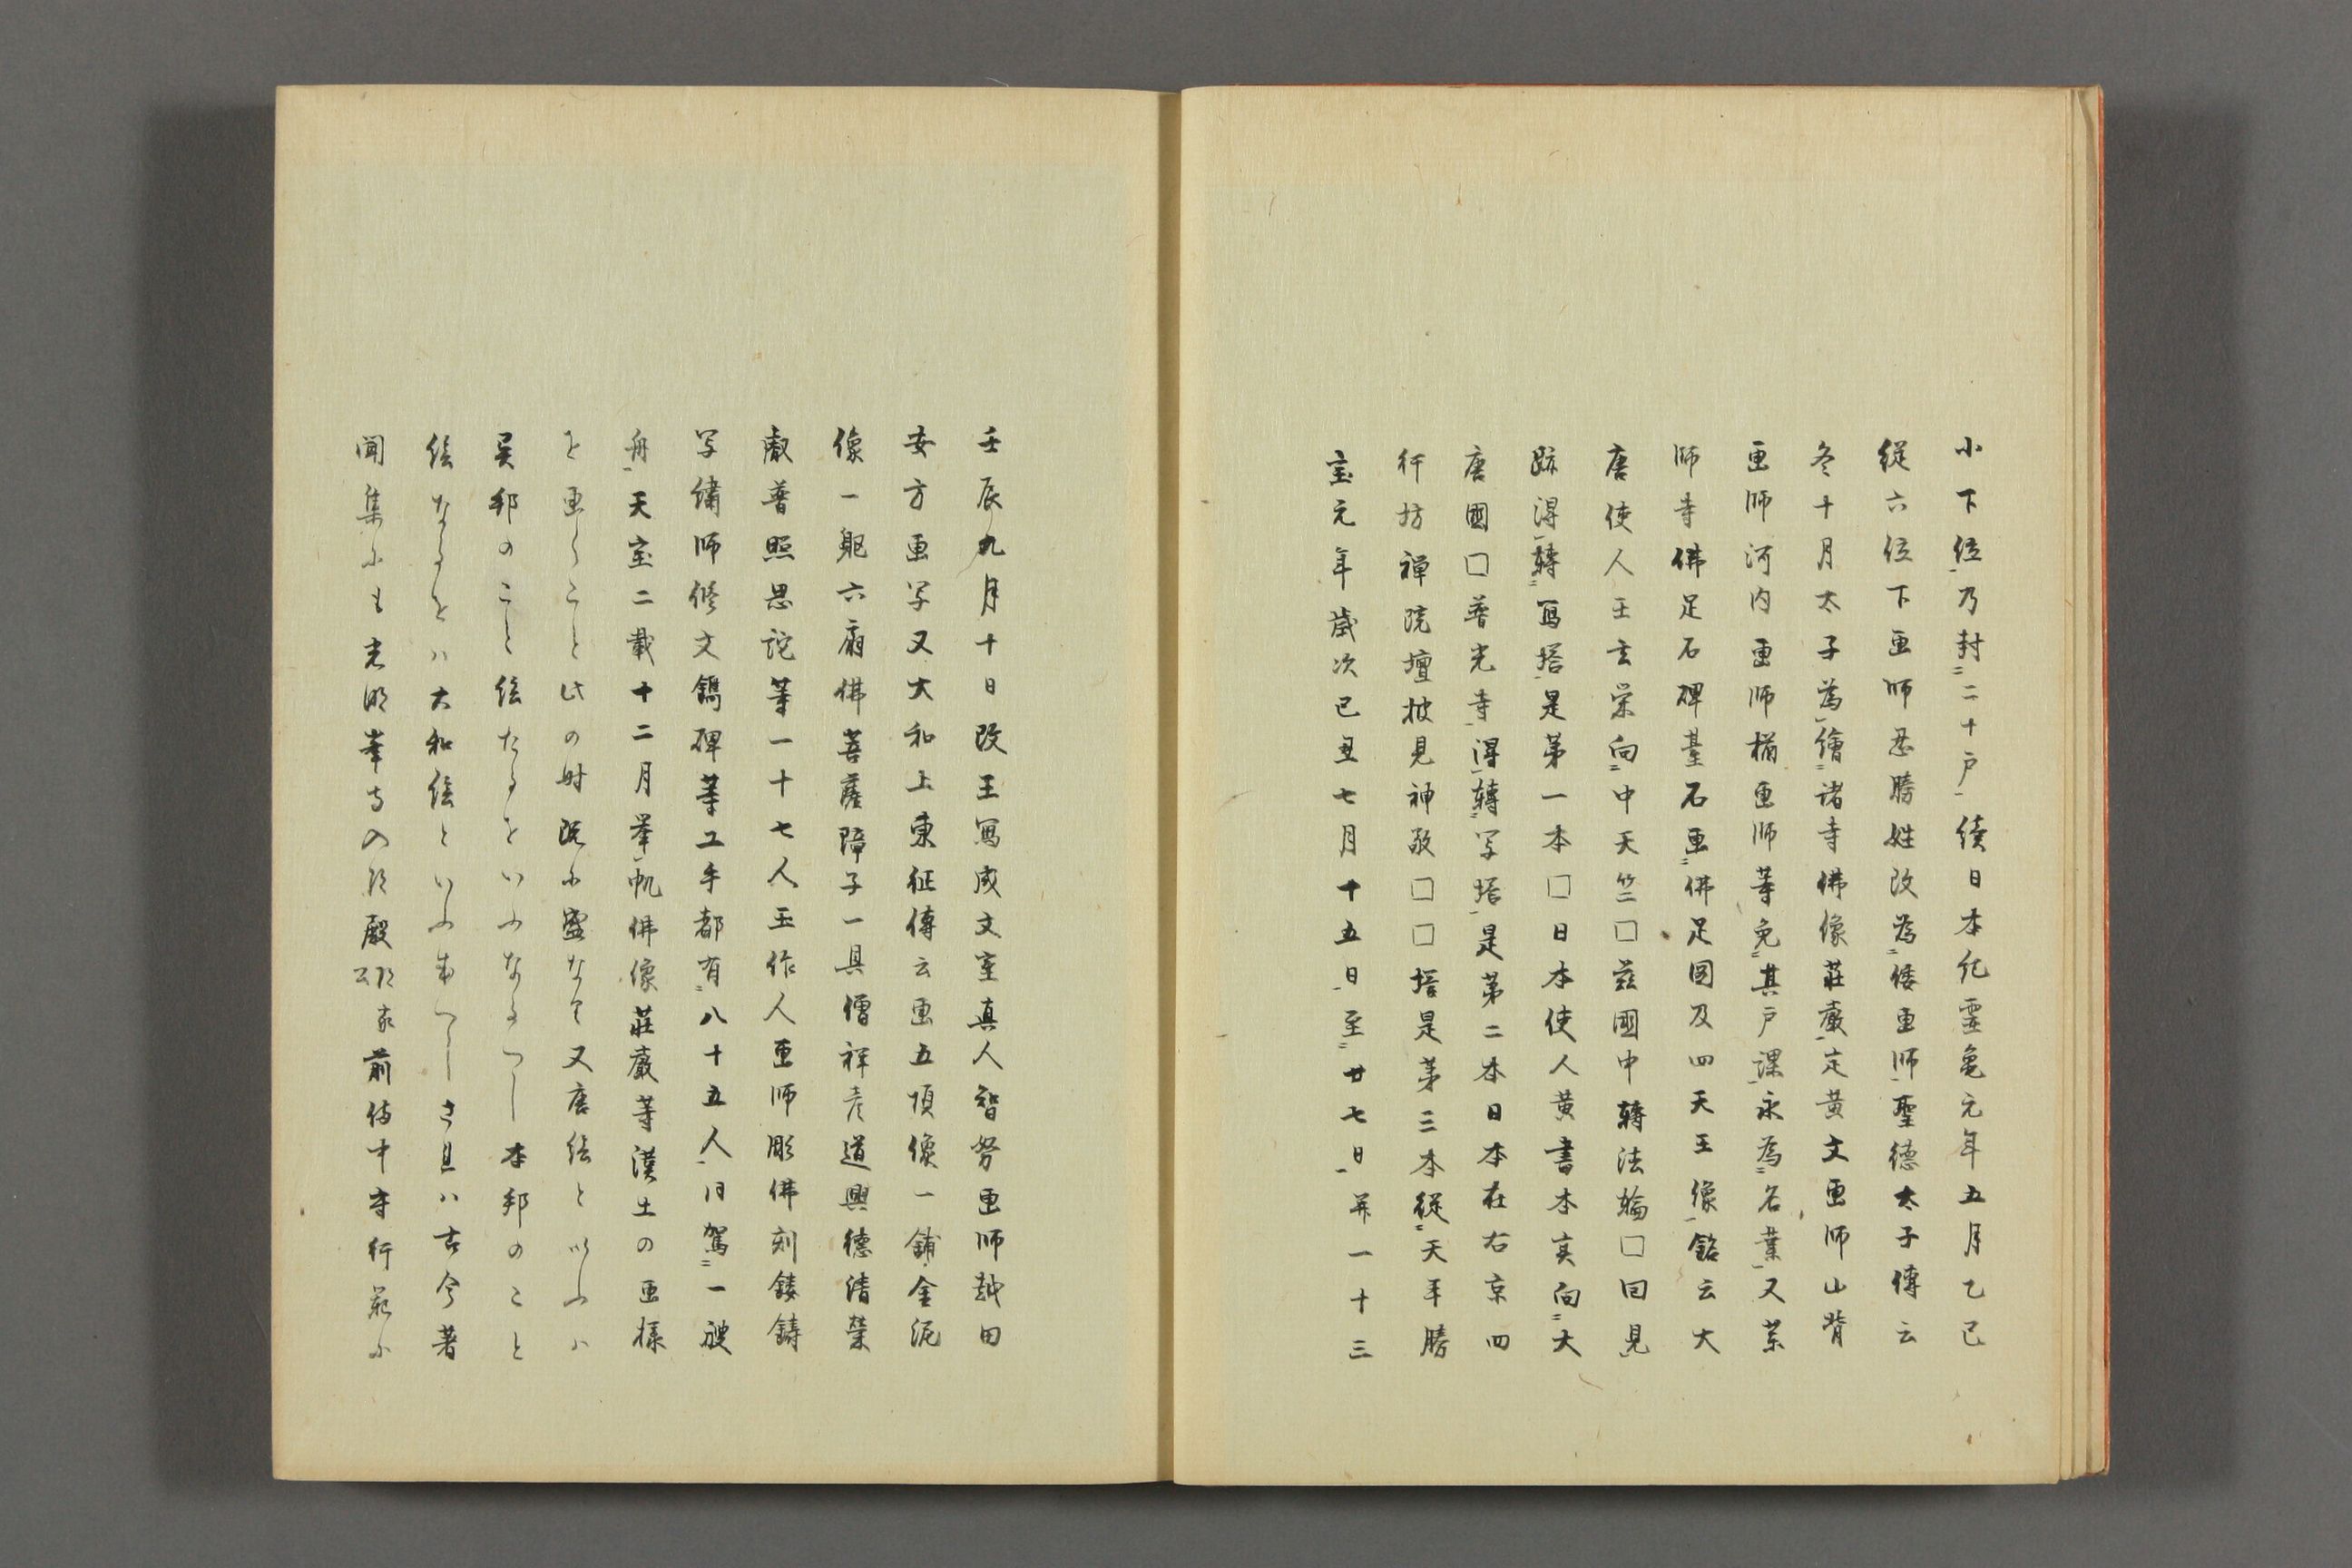 小下位乃封二十戸続日本紀霊亀元年五月乙巳
従六位下画師忍勝姓改為倭画師聖徳太子傳云
冬十月太子為繪諸寺佛像荘厳定黄文画師山背
画師河内画師楢画師等免其戸課永為名業又薬
師寺佛足石碑䑓石画佛足図及四天王像銘云大
唐使人王玄栄向中天竺□茲國中轉法輪□因見
跡得轉寫搭是第一本□日本使人黄書本実向大
唐國□普光寺得轉写搭是第二本日本在右京四
行坊禅院壇披見神敬□□搭是第三本従天平勝
宝元年歳次己丑七月十五日至廿七日并一十三
壬辰九月十日改王寫成文室真人智努画師越田
安方画写又大和上東征傳云画五頂像一鋪金泥
像一躯六扇佛菩薩障子一具僧祥彦道興徳清榮
叡普照思託等一十七人玉作人画師彫佛刻鏤鋳
写繍師修文鐫碑等工手都有八十五人同駕一艘
舟天宝二載十二月挙帆佛像荘厳等漢土の画様
を画くこと此の時既に盛なり又唐絵といふハ
異邦のこと絵たるをいふなるへし本邦のこと
絵なるをハ大和絵といふ成へしさ且ハ古今著
聞集にも光明峯寺の殿前備中守行範に